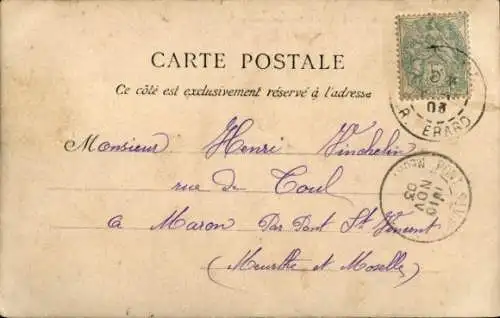 CARTE POSTALE
Ce côté est exclusivement réservé à l'adresse
Monsieur Henri Vinchelin
rue de Toul
a Maron Par Pont St Vincent
(Meurthe et Moselle)
R. ERARD
03
NOV
03